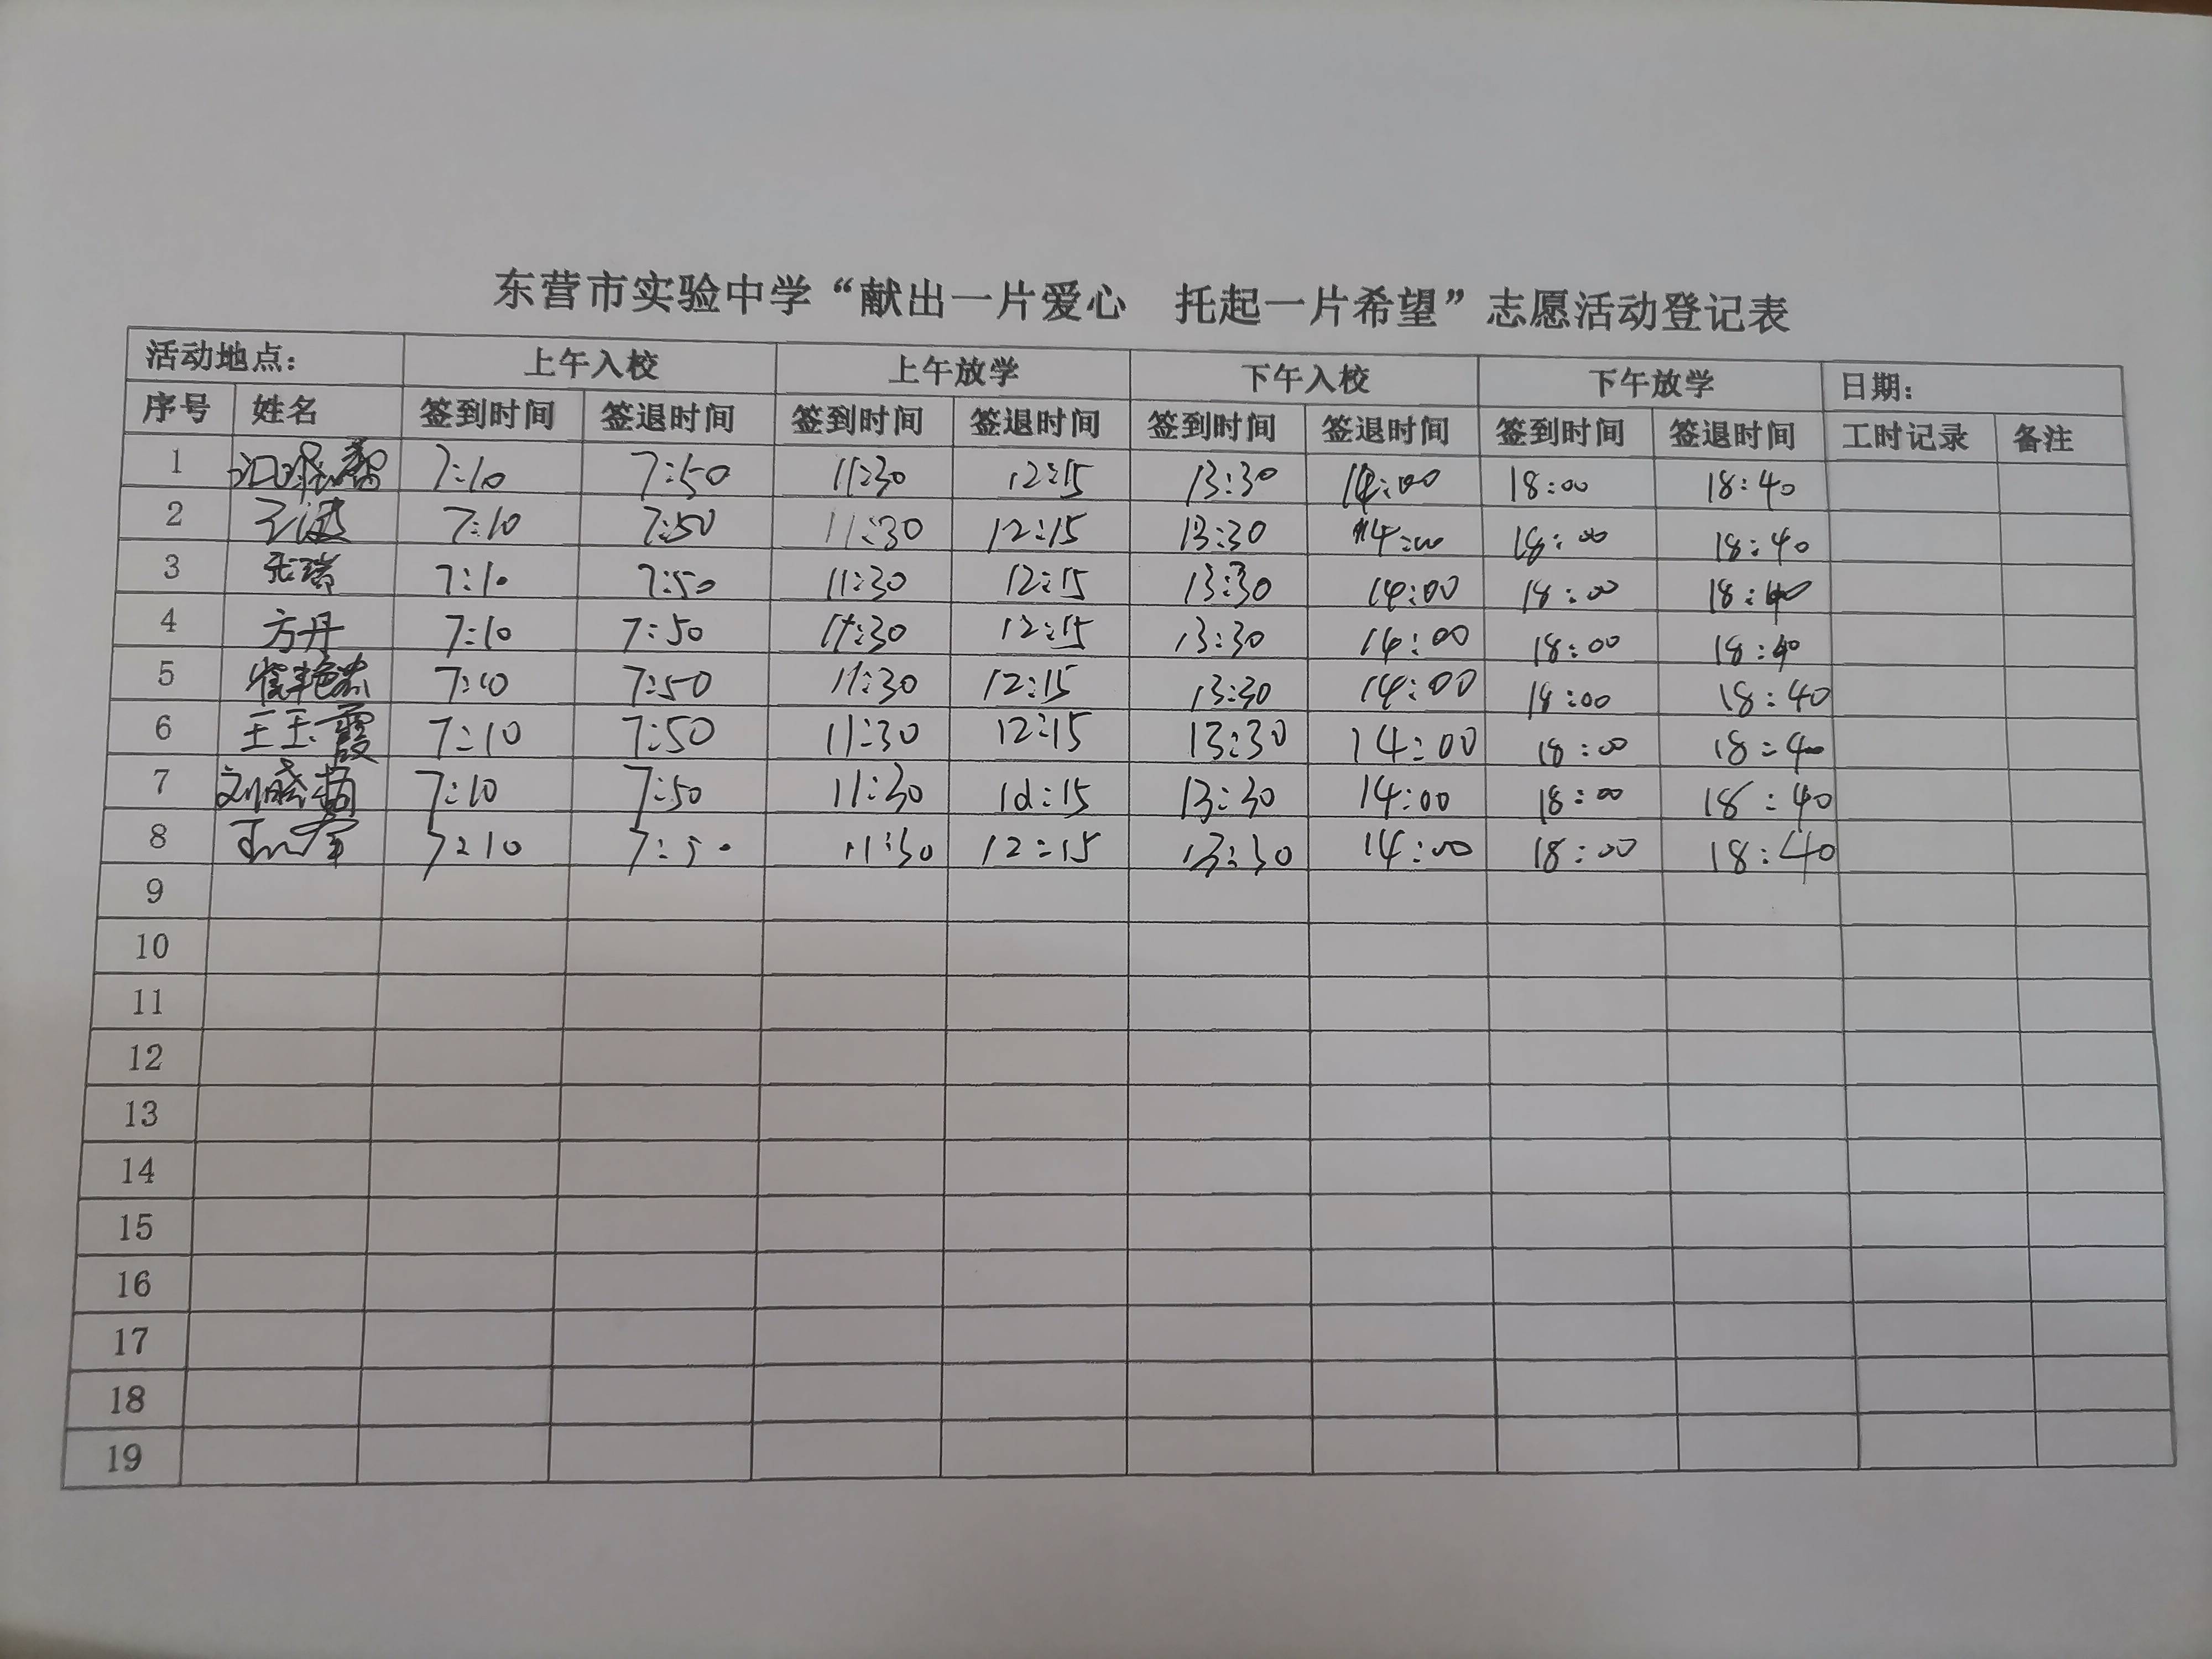 东营市实验中学“献出一片爱心 托起一片希望”志愿活动登记表
活动地点: 上午入校 上午放学 下午入校 下午放学 日期:
序号 姓名 签到时间 签退时间 签到时间 签退时间 签到时间 签退时间 签到时间 签退时间 工时记录 备注
1 7:10 7:50 11:30 12:15 13:30 14:00 18:00 18:40
2 王波 7:10 7:50 11:30 12:15 13:30 14:00 18:00 18:40
3 张瑞 7:10 7:50 11:30 12:15 13:30 14:00 18:00 18:40
4 方丹 7:10 7:50 11:30 12:15 13:30 14:00 18:00 18:40
5 7:10 7:50 11:30 12:15 13:30 14:00 18:00 18:40
6 王玉霞 7:10 7:50 11:30 12:15 13:30 14:00 18:00 18:40
7 7:10 7:50 11:30 12:15 13:30 14:00 18:00 18:40
8 7:10 7:50 11:30 12:15 13:30 14:00 18:00 18:40
9
10
11
12
13
14
15
16
17
18
19